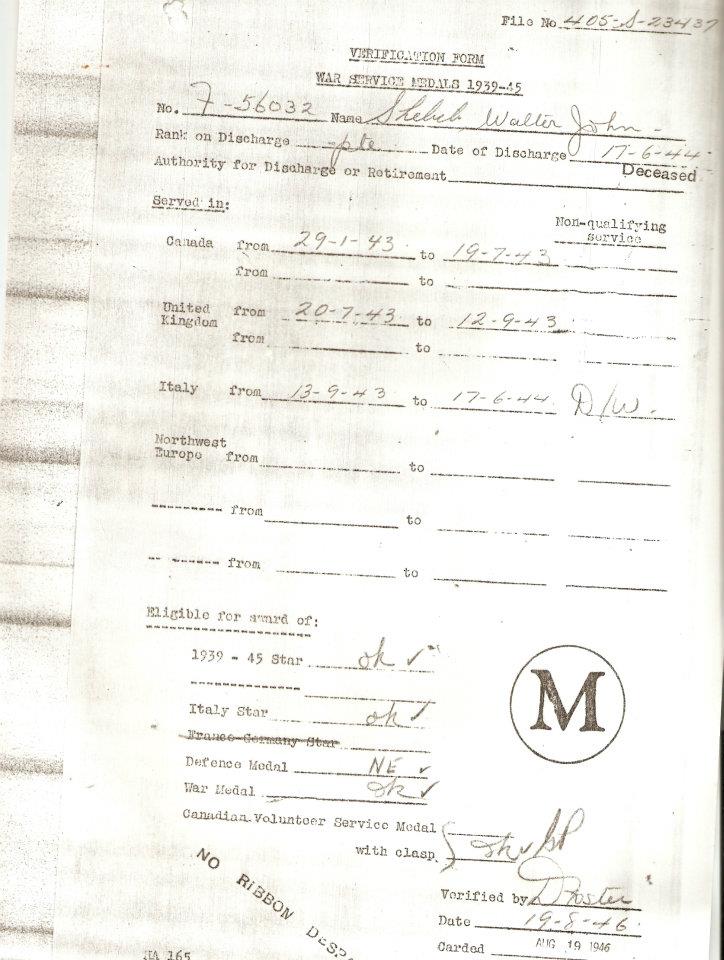 File No 405-S-23437
VERIFICATION FORM
WAR SERVICE MEDALS 1939-45
No. F-56032 Name Walter John
Rank on Discharge pte Date of Discharge 17-6-44
Authority for Discharge or Retirement Deceased
Served in:
Non-qualifying
service
Canada from 29-1-43 to 19-7-43
from to
United
Kingdom from 20-7-43 to 12-9-43
from to
Italy from 13-9-43 to 17-6-44 D/W.
Northwest
Europe from to
--------- from to
-- ------ from to
Eligible for award of:
1939 - 45 Star ok ✓
Italy Star ok ✓
France-Germany Star
Defence Medal NE ✓
War Medal ok ✓
Canadian Volunteer Service Medal
with clasp ok ✓
M
NO RIBBON
Verified by
Date 19-8-46
Carded AUG 19 1946